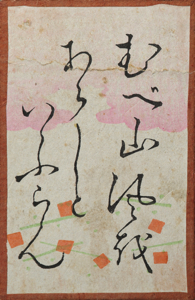 むべ山風越
あらしと
いふらん